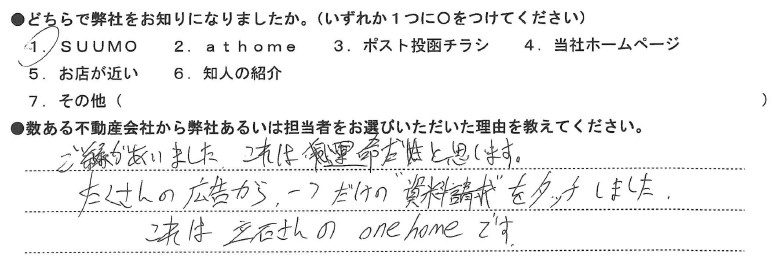 ●どちらで弊社をお知りになりましたか。（いずれか１つに○をつけてください）
１．ＳＵＵＭＯ　２．ａｔｈｏｍｅ　３．ポスト投函チラシ　４．当社ホームページ
５．お店が近い　６．知人の紹介
７．その他（　　　　　　　　　　）
●数ある不動産会社から弊社あるいは担当者をお選びいただいた理由を教えてください。
ご縁がありました これは運命だと思います。
たくさんの広告から、一つだけの"資料請求"をタッチしました.
これは 立石さんの one home です.